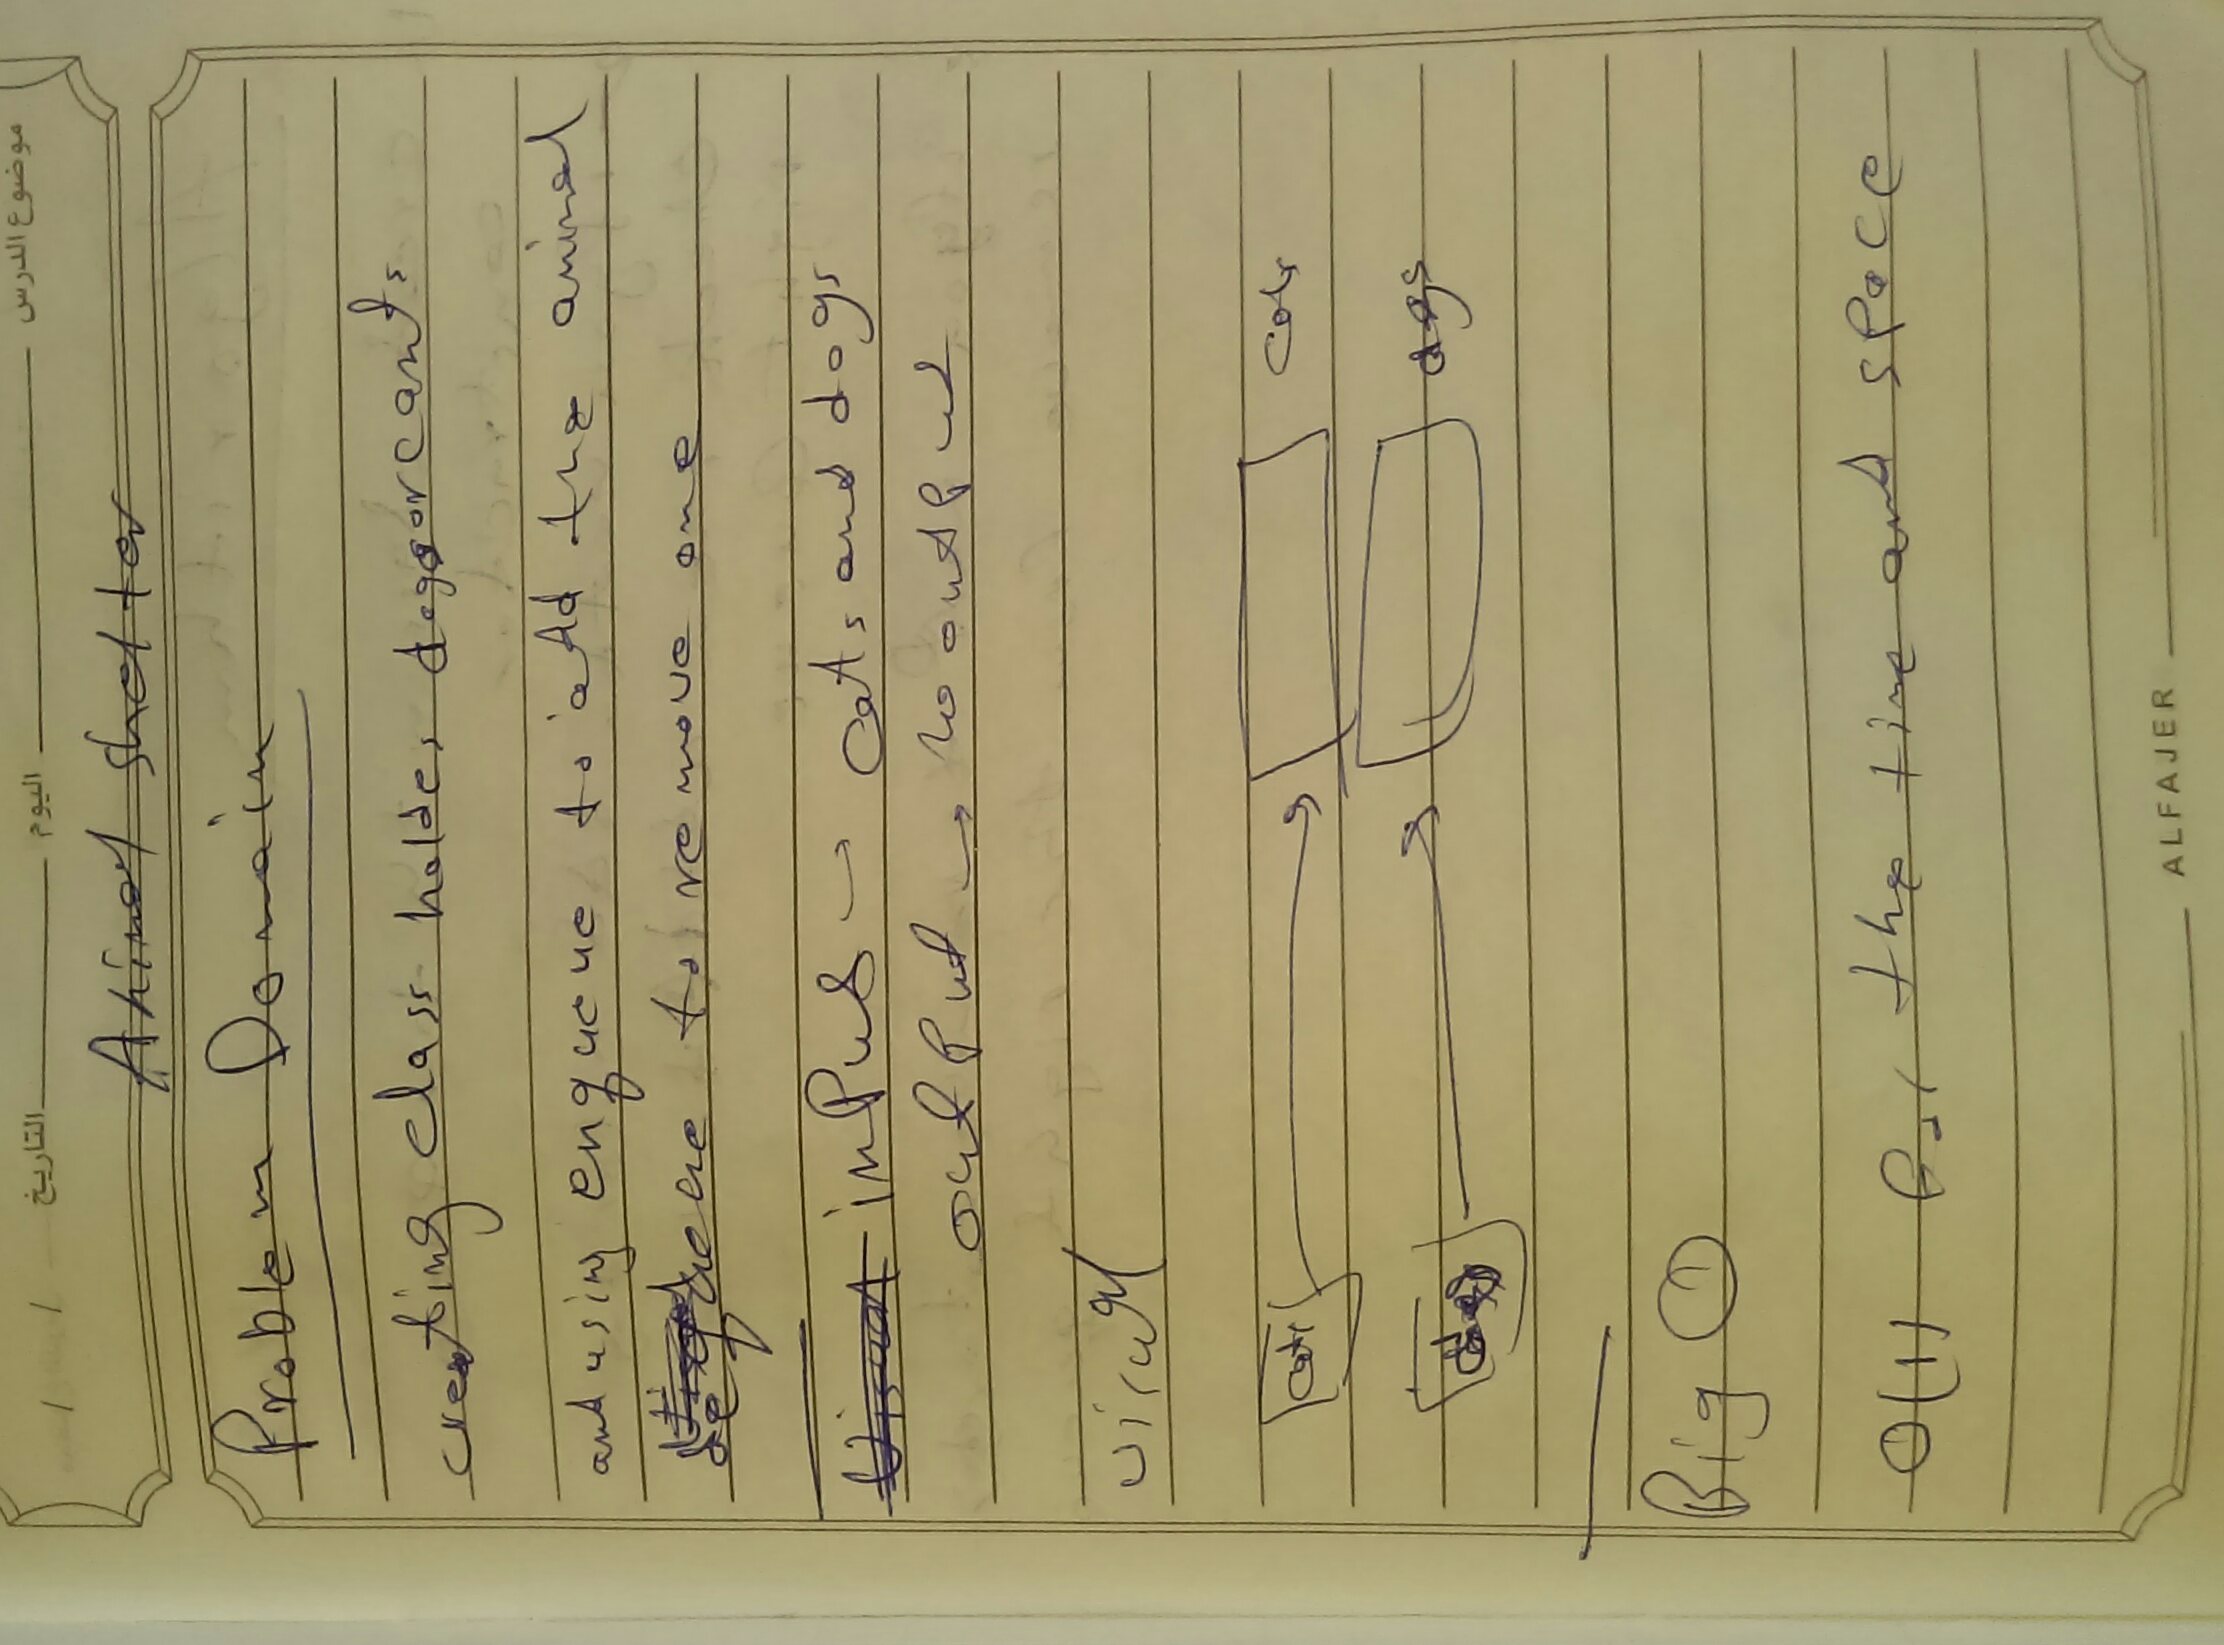 التاريخ اليوم موضوع الدرس
Animal shelter
Problem Domain
creating class holdes dogs or cants
and using enqueue to add the animal
dequeue to remove one
input → Cats and dogs
output → no output
visual
cats cats
dogs dogs
Big O
O(1) For the time and space
ALFAJER